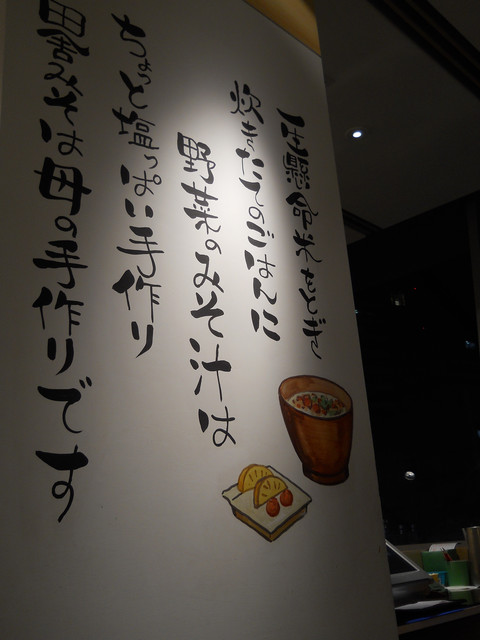 一生懸命米をとぎ
炊きたてのごはんに
野菜のみそ汁は
ちょっと塩っぱい手作り
田舎みそは母の手作りです